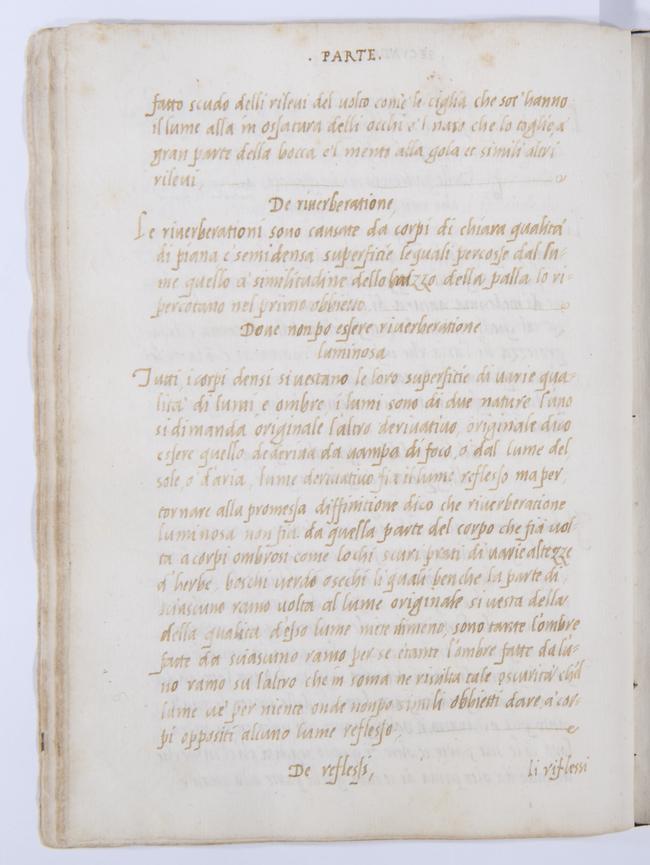 . PARTE.
fatto scudo delli rilevi del volto come le ciglia che sot' hanno
il lume alla in ossatura delli occhi e'l naso che lo toglie, a
gran parte della bocca e'l mento alla gola et simili altri
rilevi,
De riverberatione,
Le riverberationi sono causate da corpi di chiara qualità
di piana e semidensa superfitie le quali percosse dal lu-
me quello a similitudine dello balzzo della palla lo ri-
percotano nel primo obbietto
Dove non po essere riverberatione
luminosa
Tutti i corpi densi si vestano le loro superfitie di varie qua-
lità di lumi e ombre i lumi sono di due nature l'uno
si dimanda originale l'altro derivativo, originale dico
essere quello de deriva da vampa di foco, o' dal lume del
sole, o' d'aria, lume derivativo fia il lume reflesso ma per,
tornare alla promessa diffinitione dico che riverberatione
luminosa non fia da quella parte del corpo che fia vol-
ta a corpi ombrosi come lochi scuri prati di varie altezze
d' herbe, boschi verdo osechi li quali ben che la parte di
ciascuno ramo volta al lume originale si vesta della
della qualità d'esso lume niete dimeno, sono tante l'ombre
fatte da ciascuno ramo per se e tante l'ombre fatte da lu-
no ramo su l'altro che in soma ne risulta tale oscurità ch'l
lume ve' per niente onde non po simili obbietti dare a' cor-
pi oppositi alcuno lume reflesso,
De reflessi, li riflessi